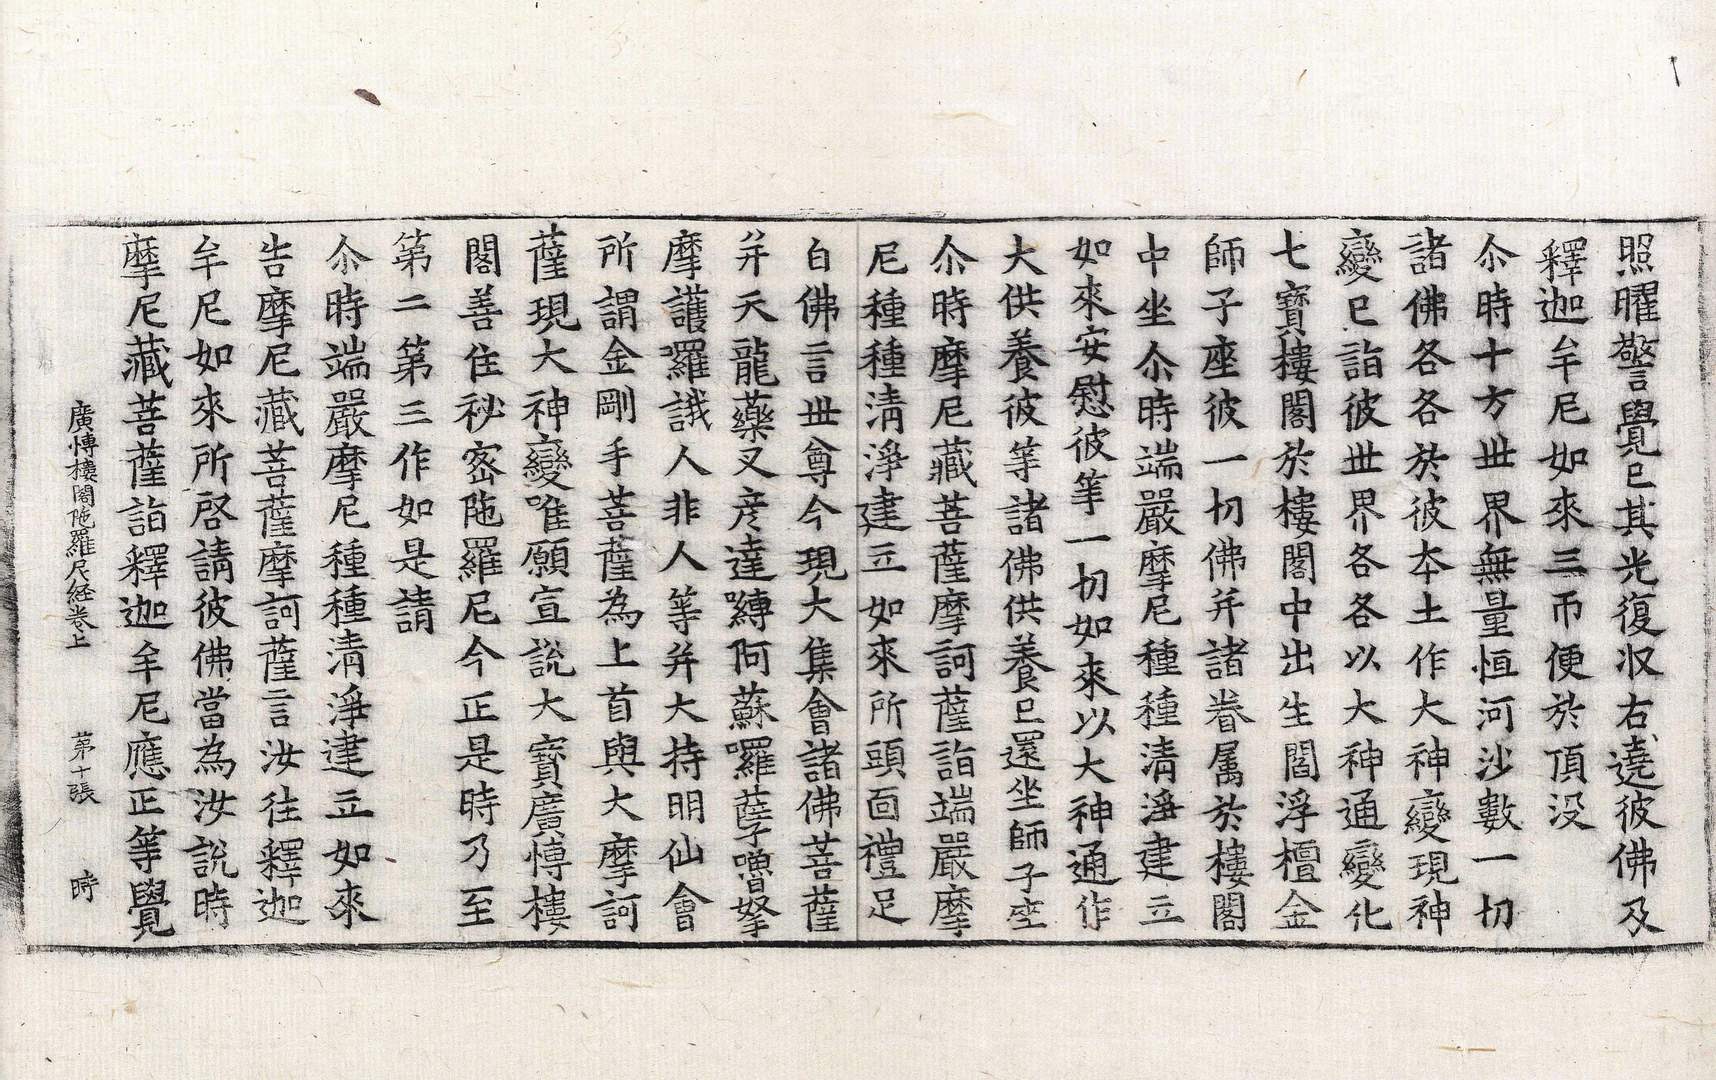 照曜警覺已其光復収右遶彼佛及
釋迦牟尼如來三帀便於頂没
尒時十方世界無量恒河沙數一切
諸佛各各於彼本土作大神變現神
變已詣彼世界各各以大神通變化
七寶樓閣於樓閣中出生閻浮檀金
師子座彼一切佛并諸眷属於樓閣
中坐尒時端嚴摩尼種種清淨建立
如來安慰彼等一切如來以大神通作
大供養彼等諸佛供養已還坐師子座
尒時摩尼藏菩薩摩訶薩詣端嚴摩
尼種種清淨建立如來所頭面禮足
白佛言世尊今現大集會諸佛菩薩
并天龍藥叉彦達嚩阿蘇囉蘖嚕拏
摩護囉誐人非人等并大持明仙會
所謂金剛手菩薩為上首與大摩訶
薩現大神變唯願宣說大寶廣博樓
閣善住祕密陁羅尼今正是時乃至
第二第三作如是請
尒時端嚴摩尼種種清淨建立如來
告摩尼藏菩薩摩訶薩言汝往釋迦
牟尼如來所啓請彼佛當為汝說時
摩尼藏菩薩詣釋迦牟尼應正等覺
廣愽樓閣陁羅尼經卷上 第十張 時